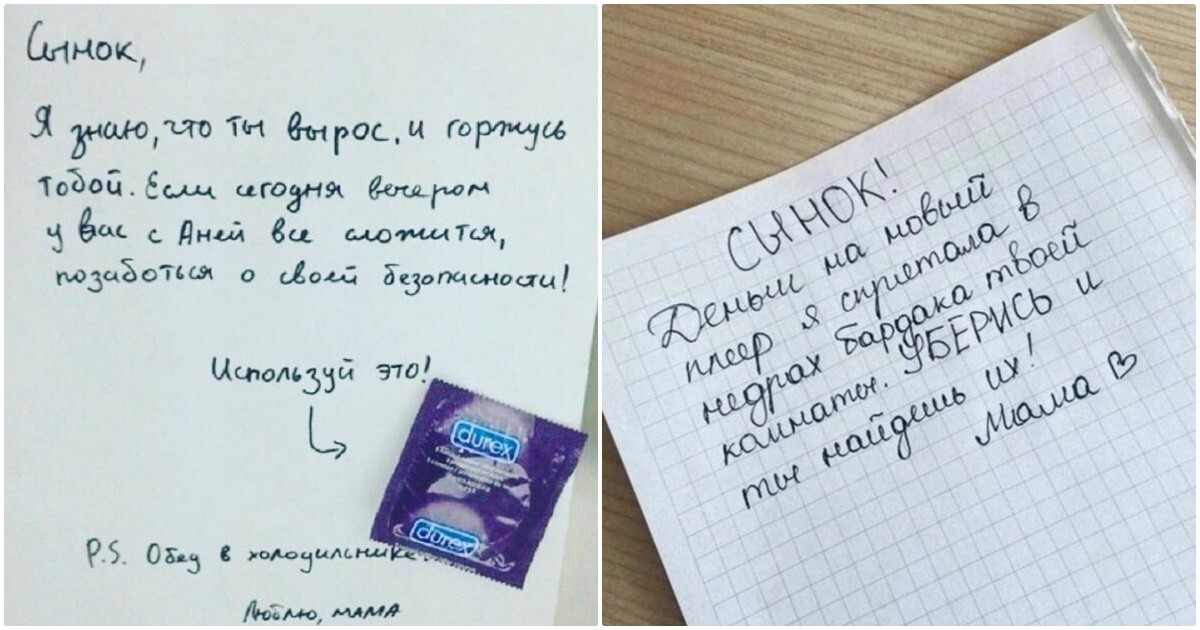 Сынок,
Я знаю, что ты вырос, и горжусь
тобой. Если сегодня вечером
у вас с Аней все сложится,
позаботься о своей безопасности!
Используй это!
durex
durex
P.S. Обед в холодильнике.
Люблю, мама
СЫНОК!
Деньги на новый
плеер я спрятала в
недрах бардака твоей
комнаты. УБЕРИСЬ и
ты найдешь их!
Мама